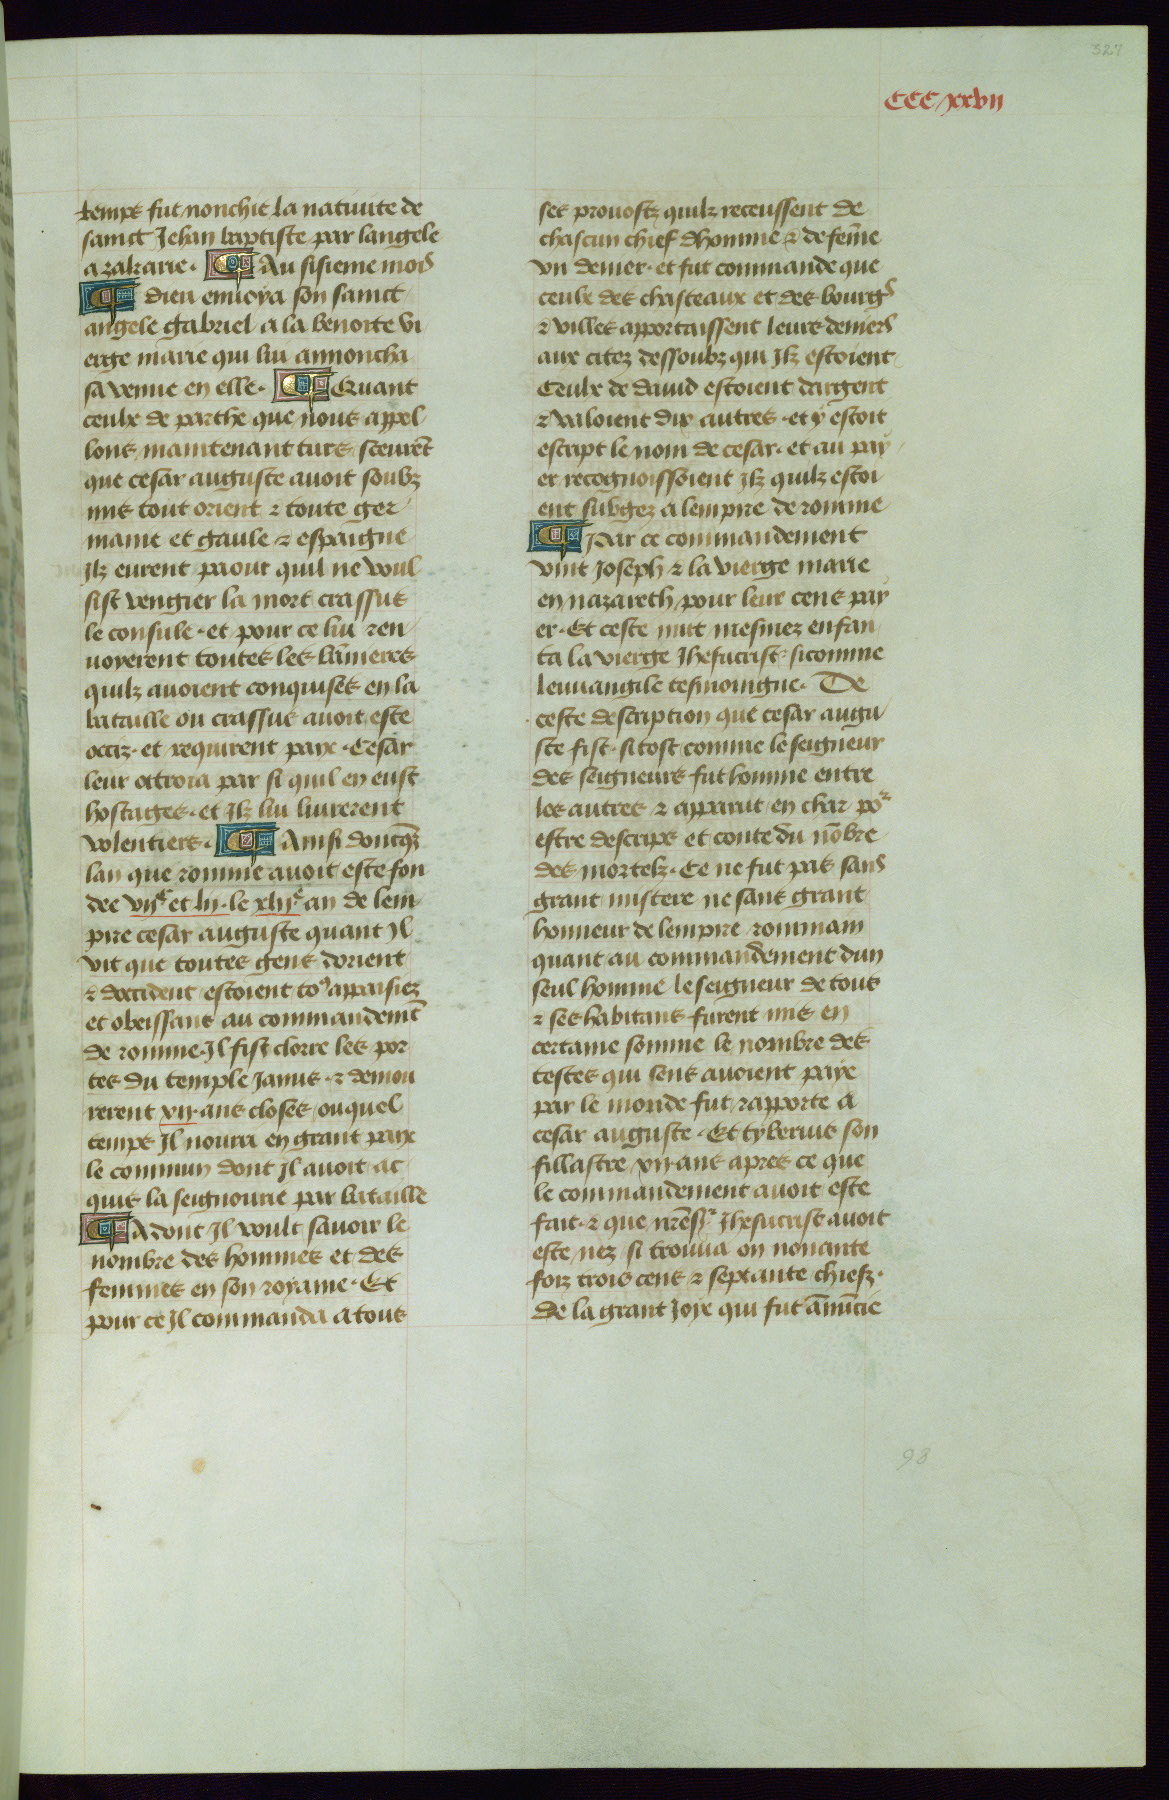 327
CCC xxvii
temps fut nonchie la natiuite de
sainct Jehan baptiste par langele
a zakarie. Au sisieme mois
dieu enuoya son sainct
angele gabriel a la benoite vi
erge marie qui lui annoncha
sa venue en elle. Quant
ceulx de parthe que nous appel
lons maintenant turs sceurēt
que cesar auguste auoit soubz
mis tout orient ⁊ toute ger
manie et gaule ⁊ espaigne
Ilz eurent paour quil ne voul
sist vengier la mort crassus
le consule. et pour ce lui ren
uoyerent toutes les bānieres
quilz auoient conquises en la
bataille ou crassus auoit este
occiz. et requirent paix. Cesar
leur ottroia par si quil en eust
hostages. et Ilz lui liurerent
volentiers. Ainsi doncqz
lan que romme auoit este fon
dee vijᶜ et lij. le xlijᵉ an de lem
pire cesar auguste quant Il
vit que toutes gens dorient
⁊ doccident estoient toꝰ appaisiez
et obeissans au commandemēt
de romme. Il fist clorre les por
tes du temple Janus. ⁊ demou
rerent xij. ans closes ouquel
temps Il nouri en grant paix
le commun dont Il auoit ac
quis la seignourie par bataille
Adont Il voult sauoir le
nombre des hommes et des
femmes en son royame. Et
pour ce Il commanda a tous
ses prouostz quilz receussent de
chascun chief dhomme ⁊ de fēme
vn denier. et fut commande que
ceulx des chasteaux et des bourgs
⁊ villes apportaissent leurs deniers
aux citez dessoubz qui Ilz estoient
Ceulx de dauid estoient dargent
⁊ valoient dix autres. et y estoit
escript le nom de cesar. et au pay
er recognoissoient Ilz quilz estoi
ent subgez a lempire de romme
Par ce commandement
vint Joseph ⁊ la vierge marie
en nazareth pour leur cens pay
er. Et ceste nuit mesmez enfan
ta la vierge Jhesucrist. sicomme
leuuangile tesmoingne. De
ceste description que cesar augu
ste fist. si tost comme le seigneur
des seigneurs fut homme entre
les autres ⁊ apparut en char poʳ
estre descrips et conte du nōbre
des mortelz. Ce ne fut pas sans
grant mistere ne sans grant
honneur de lempire rommain
quant au commandement dun
seul homme le seigneur de tous
⁊ ses habitans furent mis en
certaine somme le nombre des
testes qui sens auoient paye
par le monde fut rapporte a
cesar auguste. Et tyberius son
fillastre xij. ans apres ce que
le commandement auoit este
fait. ⁊ que nr̄e sʳ Jhesucrist auoit
este nez si trouua on nonante
foiz trois cens ⁊ septante chiefz.
De la grant Joye qui fut ānūcie
98